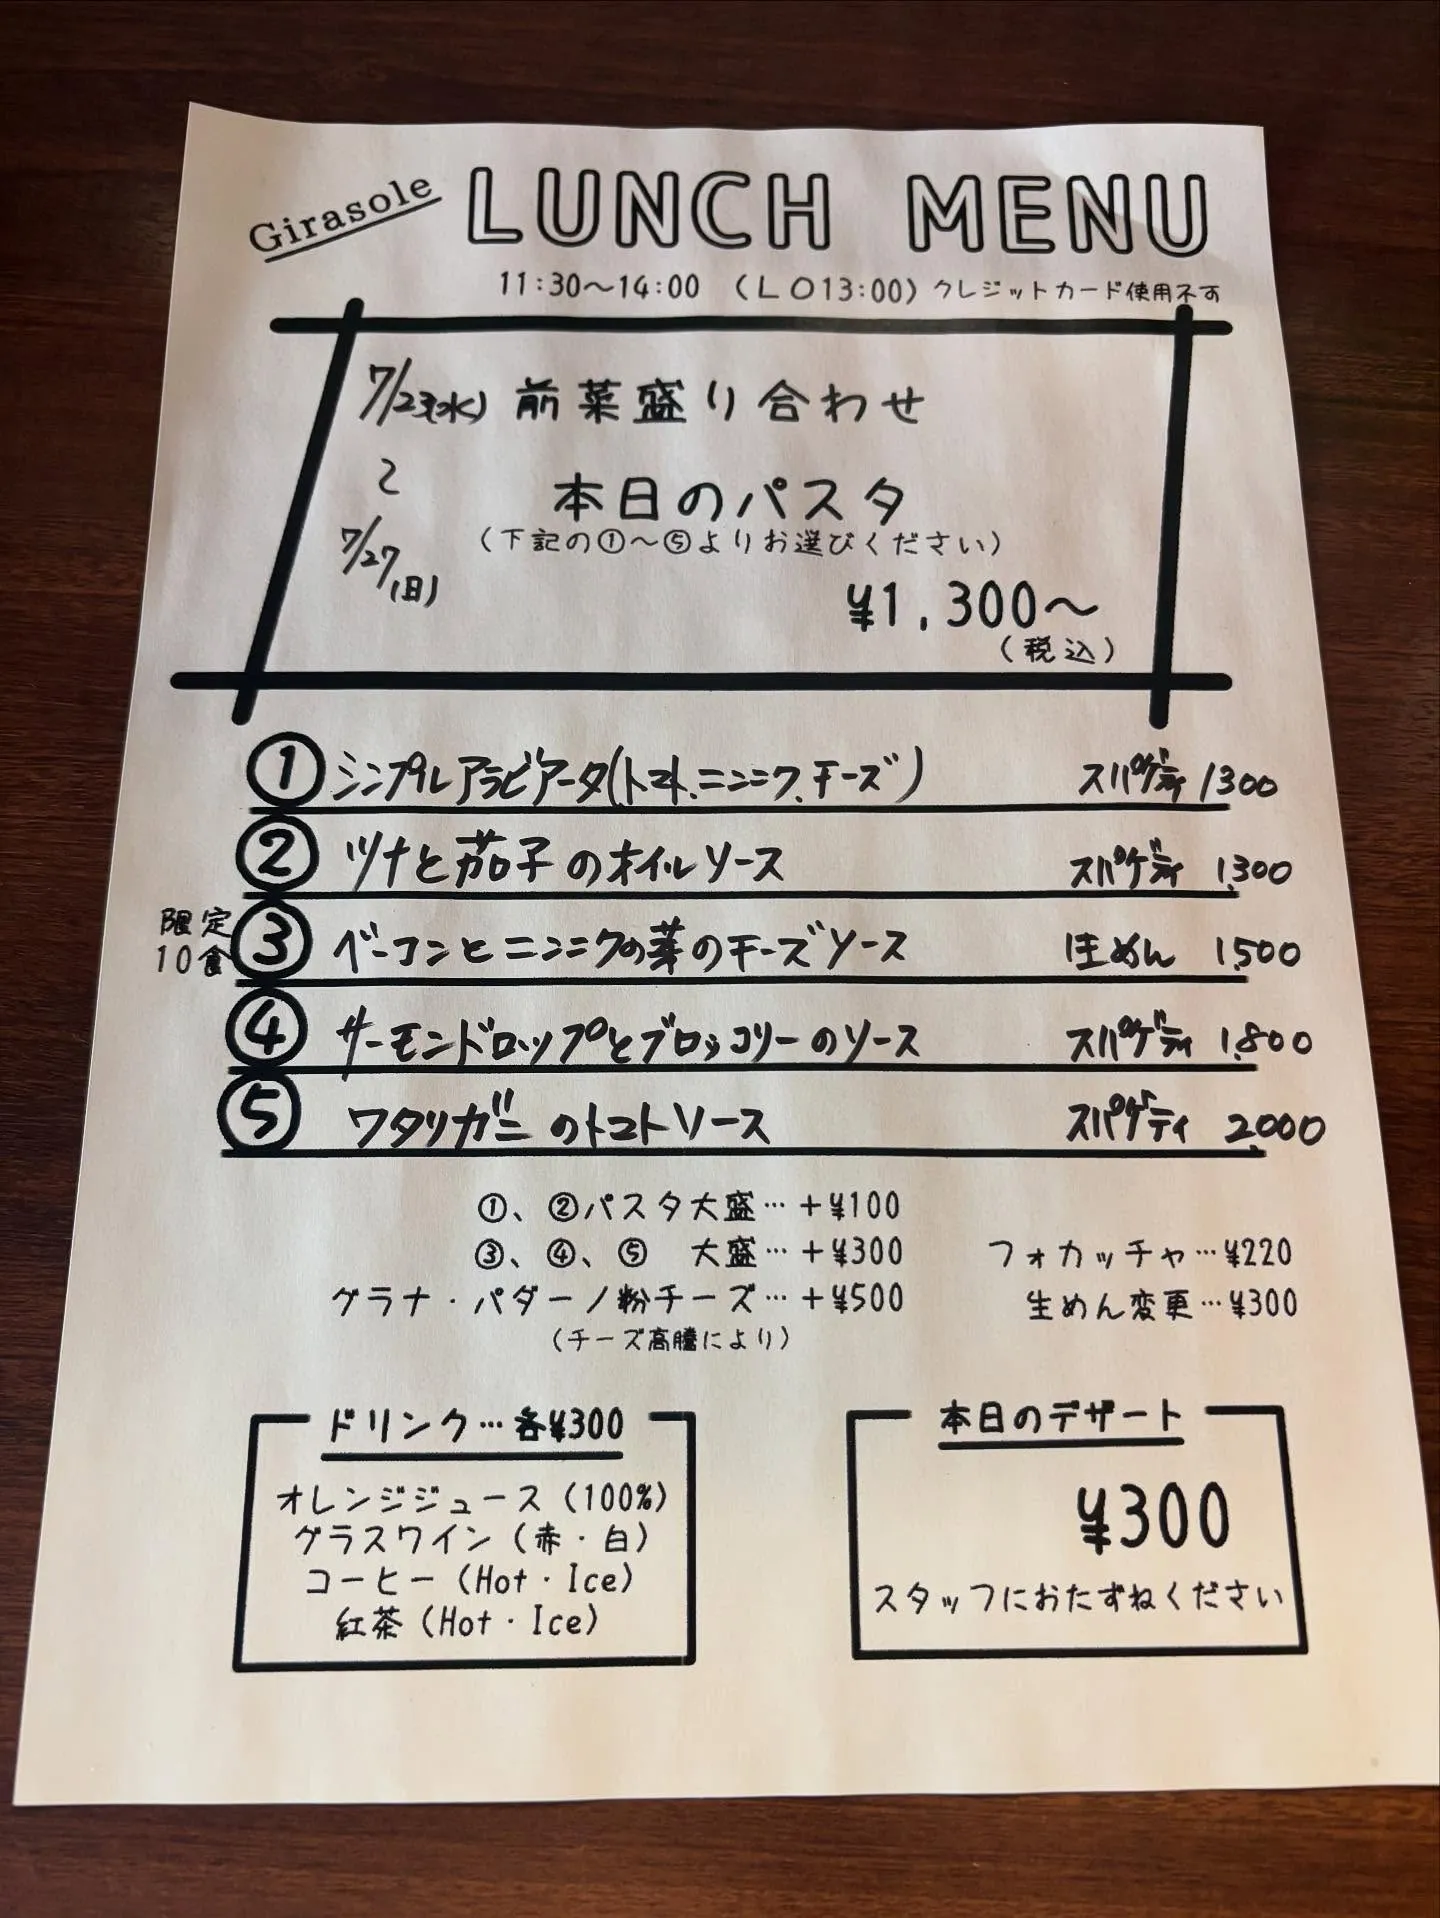 Girasole LUNCH MENU
11:30～14:00 （ＬＯ13:00）クレジットカード使用不可
7/23(水) 前菜盛り合わせ
～
本日のパスタ
7/27(日)
（下記の①～⑤よりお選びください）
¥1,300～
（税込）
① シンプルアラビアータ(トマト、ニンニク、チーズ) スパゲティ 1300
② ツナと茄子のオイルソース スパゲティ 1,300
限定
10食
③ ベーコンとニンニクの芽のチーズソース 生めん 1,500
④ サーモンドロップとブロッコリーのソース スパゲティ 1,800
⑤ ワタリガニのトマトソース スパゲティ 2,000
①、②パスタ大盛…＋¥100
③、④、⑤ 大盛…＋¥300
フォカッチャ…¥220
グラナ・パダーノ粉チーズ…＋¥500
生めん変更…¥300
（チーズ高騰により）
ドリンク…各¥300
オレンジジュース（100%）
グラスワイン（赤・白）
コーヒー（Hot・Ice）
紅茶（Hot・Ice）
本日のデザート
¥300
スタッフにおたずねください